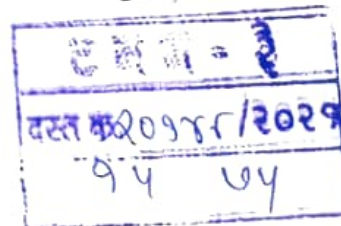 ट न न - ३
दस्त क्र २०१४८/२०२१
१५ ७५